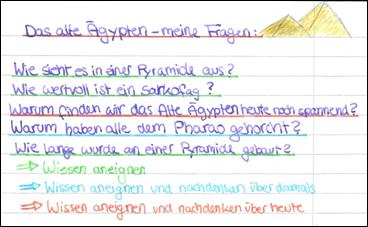 Das alte Ägypten – meine Fragen:
Wie sieht es in einer Pyramide aus?
Wie wertvoll ist ein Sarkofag?
Warum finden wir das Alte Ägypten heute noch spannend?
Warum haben alle dem Pharao gehorcht?
Wie lange wurde an einer Pyramide gebaut?
⇒ Wissen aneignen
⇒ Wissen aneignen und nachdenken über damals
⇒ Wissen aneignen und nachdenken über heute